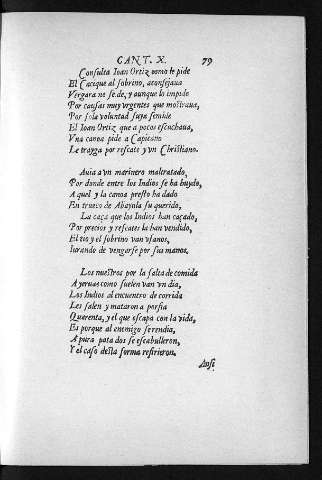 CANT. X. 79
Consulta Ioan Ortiz como le pide
El Cacique al sobrino, aconsejaua
Vergara no se de, y aunque lo impide
Por causas muy vrgentes que mostraua,
Por sola voluntad suya se mide
El Ioan Ortiz que a pocos escuchaua,
Vna canoa pide a Capicano
Le trayga por rescate y vn Christiano.
Auia a vn marinero maltratado,
Por donde entre los Indios se ha huydo,
A quel y la canoa presto ha dado
En trueco de Abayuba su querido,
La caça que los Indios han caçado,
Por precios y rescates la han vendido,
El tio y el sobrino van vfanos,
Iurando de vengarse por sus manos.
Los nuestros por la falta de comida
A yeruas como suelen van vn dia,
Los Indios al encuentro de corrida
Les salen y mataron a porfia
Quarenta, y el que escapa con la vida,
Es porque al enemigo se rendia,
A pura pata dos se escabulleron,
Y el caso desta forma refirieron.
Ansi